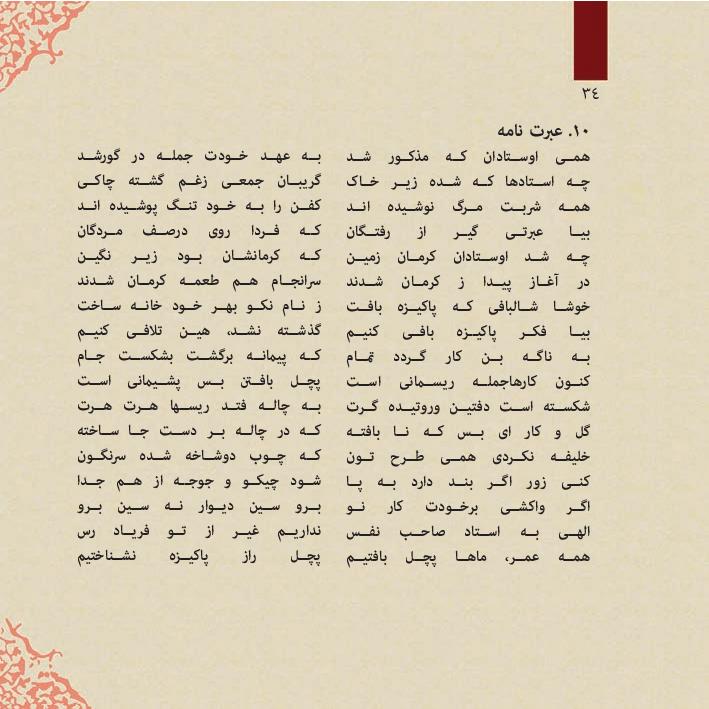 ٣٤
۱۰. عبرت نامه
همی اوستادان که مذکور شد به عهد خودت جمله در گورشد
چه استادها که شده زیر خاک گریبان جمعی زغم گشته چاکی
همه شربت مرگ نوشیده اند کفن را به خود تنگ پوشیده اند
بیا عبرتی گیر از رفتگان که فردا روی درصف مردگان
چه شد اوستادان کرمان زمین که کرمانشان بود زیر نگین
در آغاز پیدا ز کرمان شدند سرانجام هم طعمه کرمان شدند
خوشا شالبافی که پاکیزه بافت ز نام نکو بهر خود خانه ساخت
بیا فکر پاکیزه بافی کنیم گذشته نشد، هین تلافی کنیم
به ناگه بن کار گردد تمام که پیمانه برگشت بشکست جام
کنون کارهاجمله ریسمانی است پچل بافتن بس پشیمانی است
شکسته است دفتین وروتیده گرت به چاله فتد ریسها هرت هرت
گل و کار ای بس که نا بافته که در چاله بر دست جا ساخته
خلیفه نکردی همی طرح تون که چوب دوشاخه شده سرنگون
کنی زور اگر بند دارد به پا شود چیکو و جوجه از هم جدا
اگر واکشی برخودت کار نو برو سین دیوار نه سین برو
الهی به استاد صاحب نفس نداریم غیر از تو فریاد رس
همه عمر، ماها پچل بافتیم پچل راز پاکیزه نشناختیم